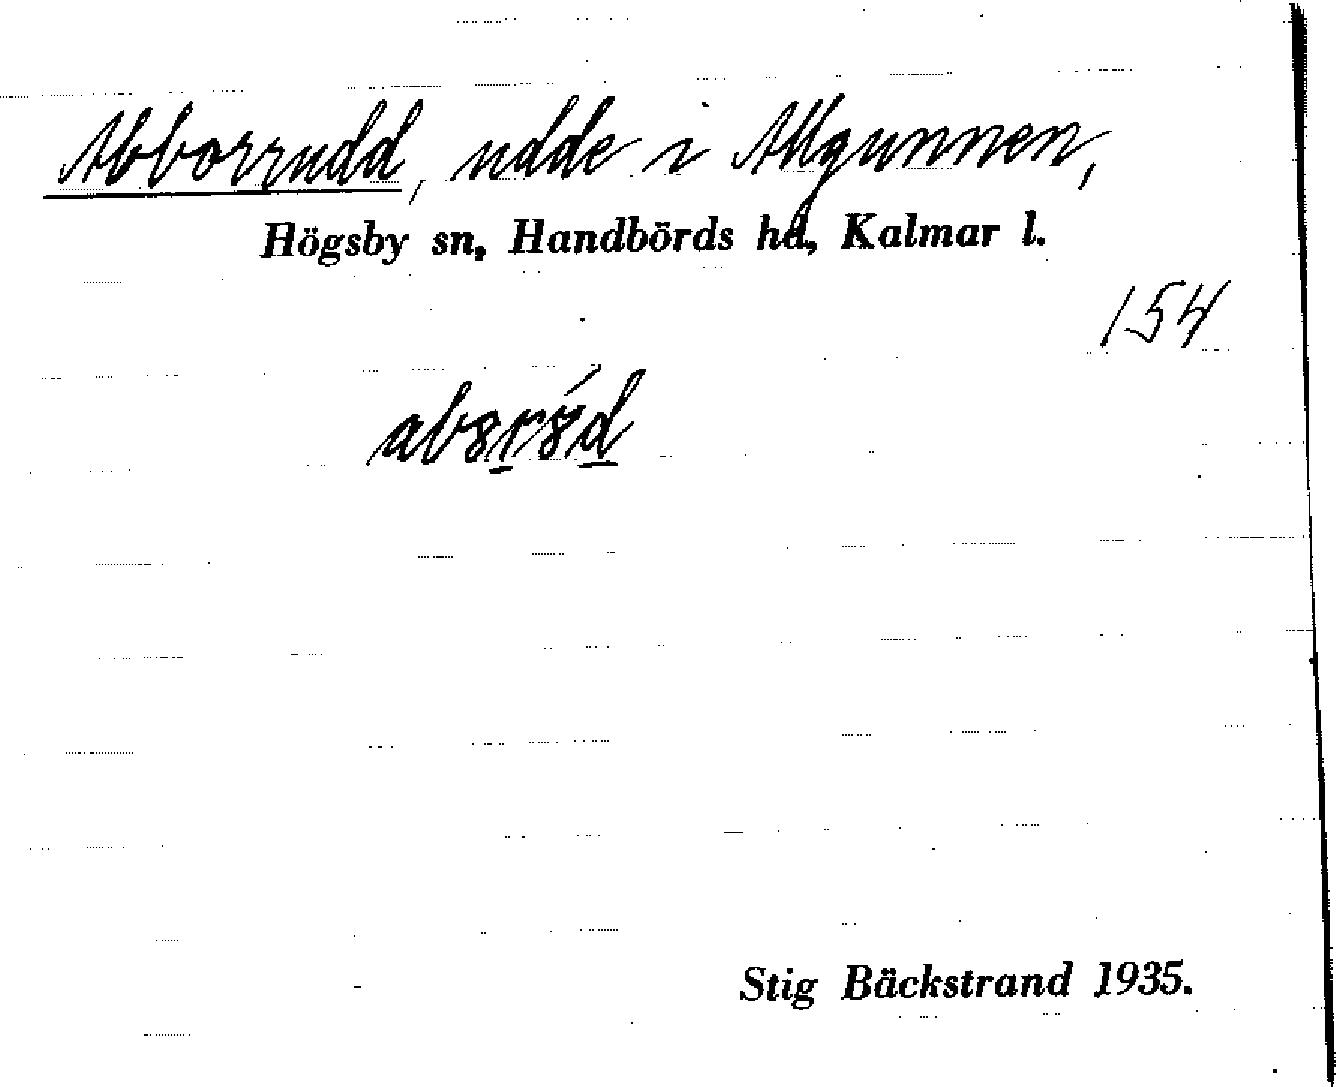 Abborrudd, udde i Allgunnen,
Högsby sn, Handbörds hd, Kalmar l.
154
Stig Bäckstrand 1935.